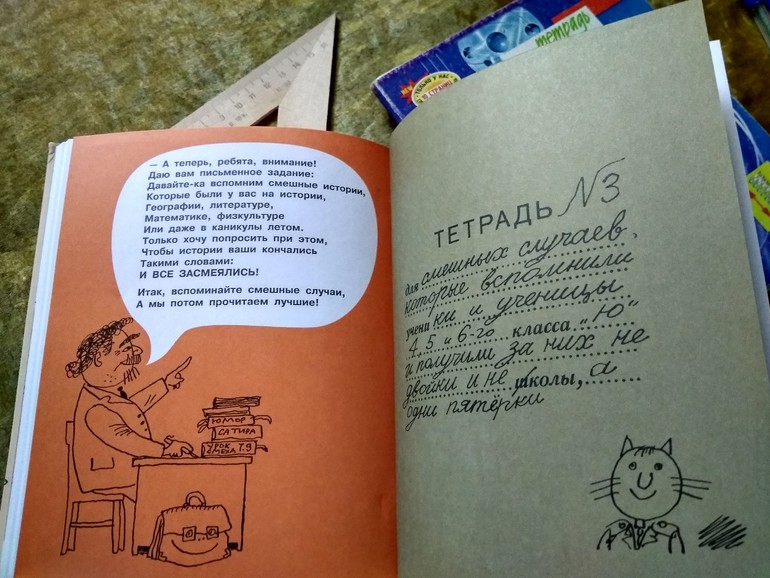 — А теперь, ребята, внимание!
Даю вам письменное задание:
Давайте-ка вспомним смешные истории,
Которые были у вас на истории,
Географии, литературе,
Математике, физкультуре
Или даже в каникулы летом.
Только хочу попросить при этом,
Чтобы истории ваши кончались
Такими словами:
И ВСЕ ЗАСМЕЯЛИСЬ!
Итак, вспоминайте смешные случаи,
А мы потом прочитаем лучшие!
ЮМОР
САТИРА
УРОК
СМЕХА Т.9
тетрадь
ТЕТРАДЬ №3
для смешных случаев,
которые вспомнили
ученики и ученицы
4, 5 и 6-го класса „Ю"
и получили за них не
двойки и не школы, а
одни пятёрки